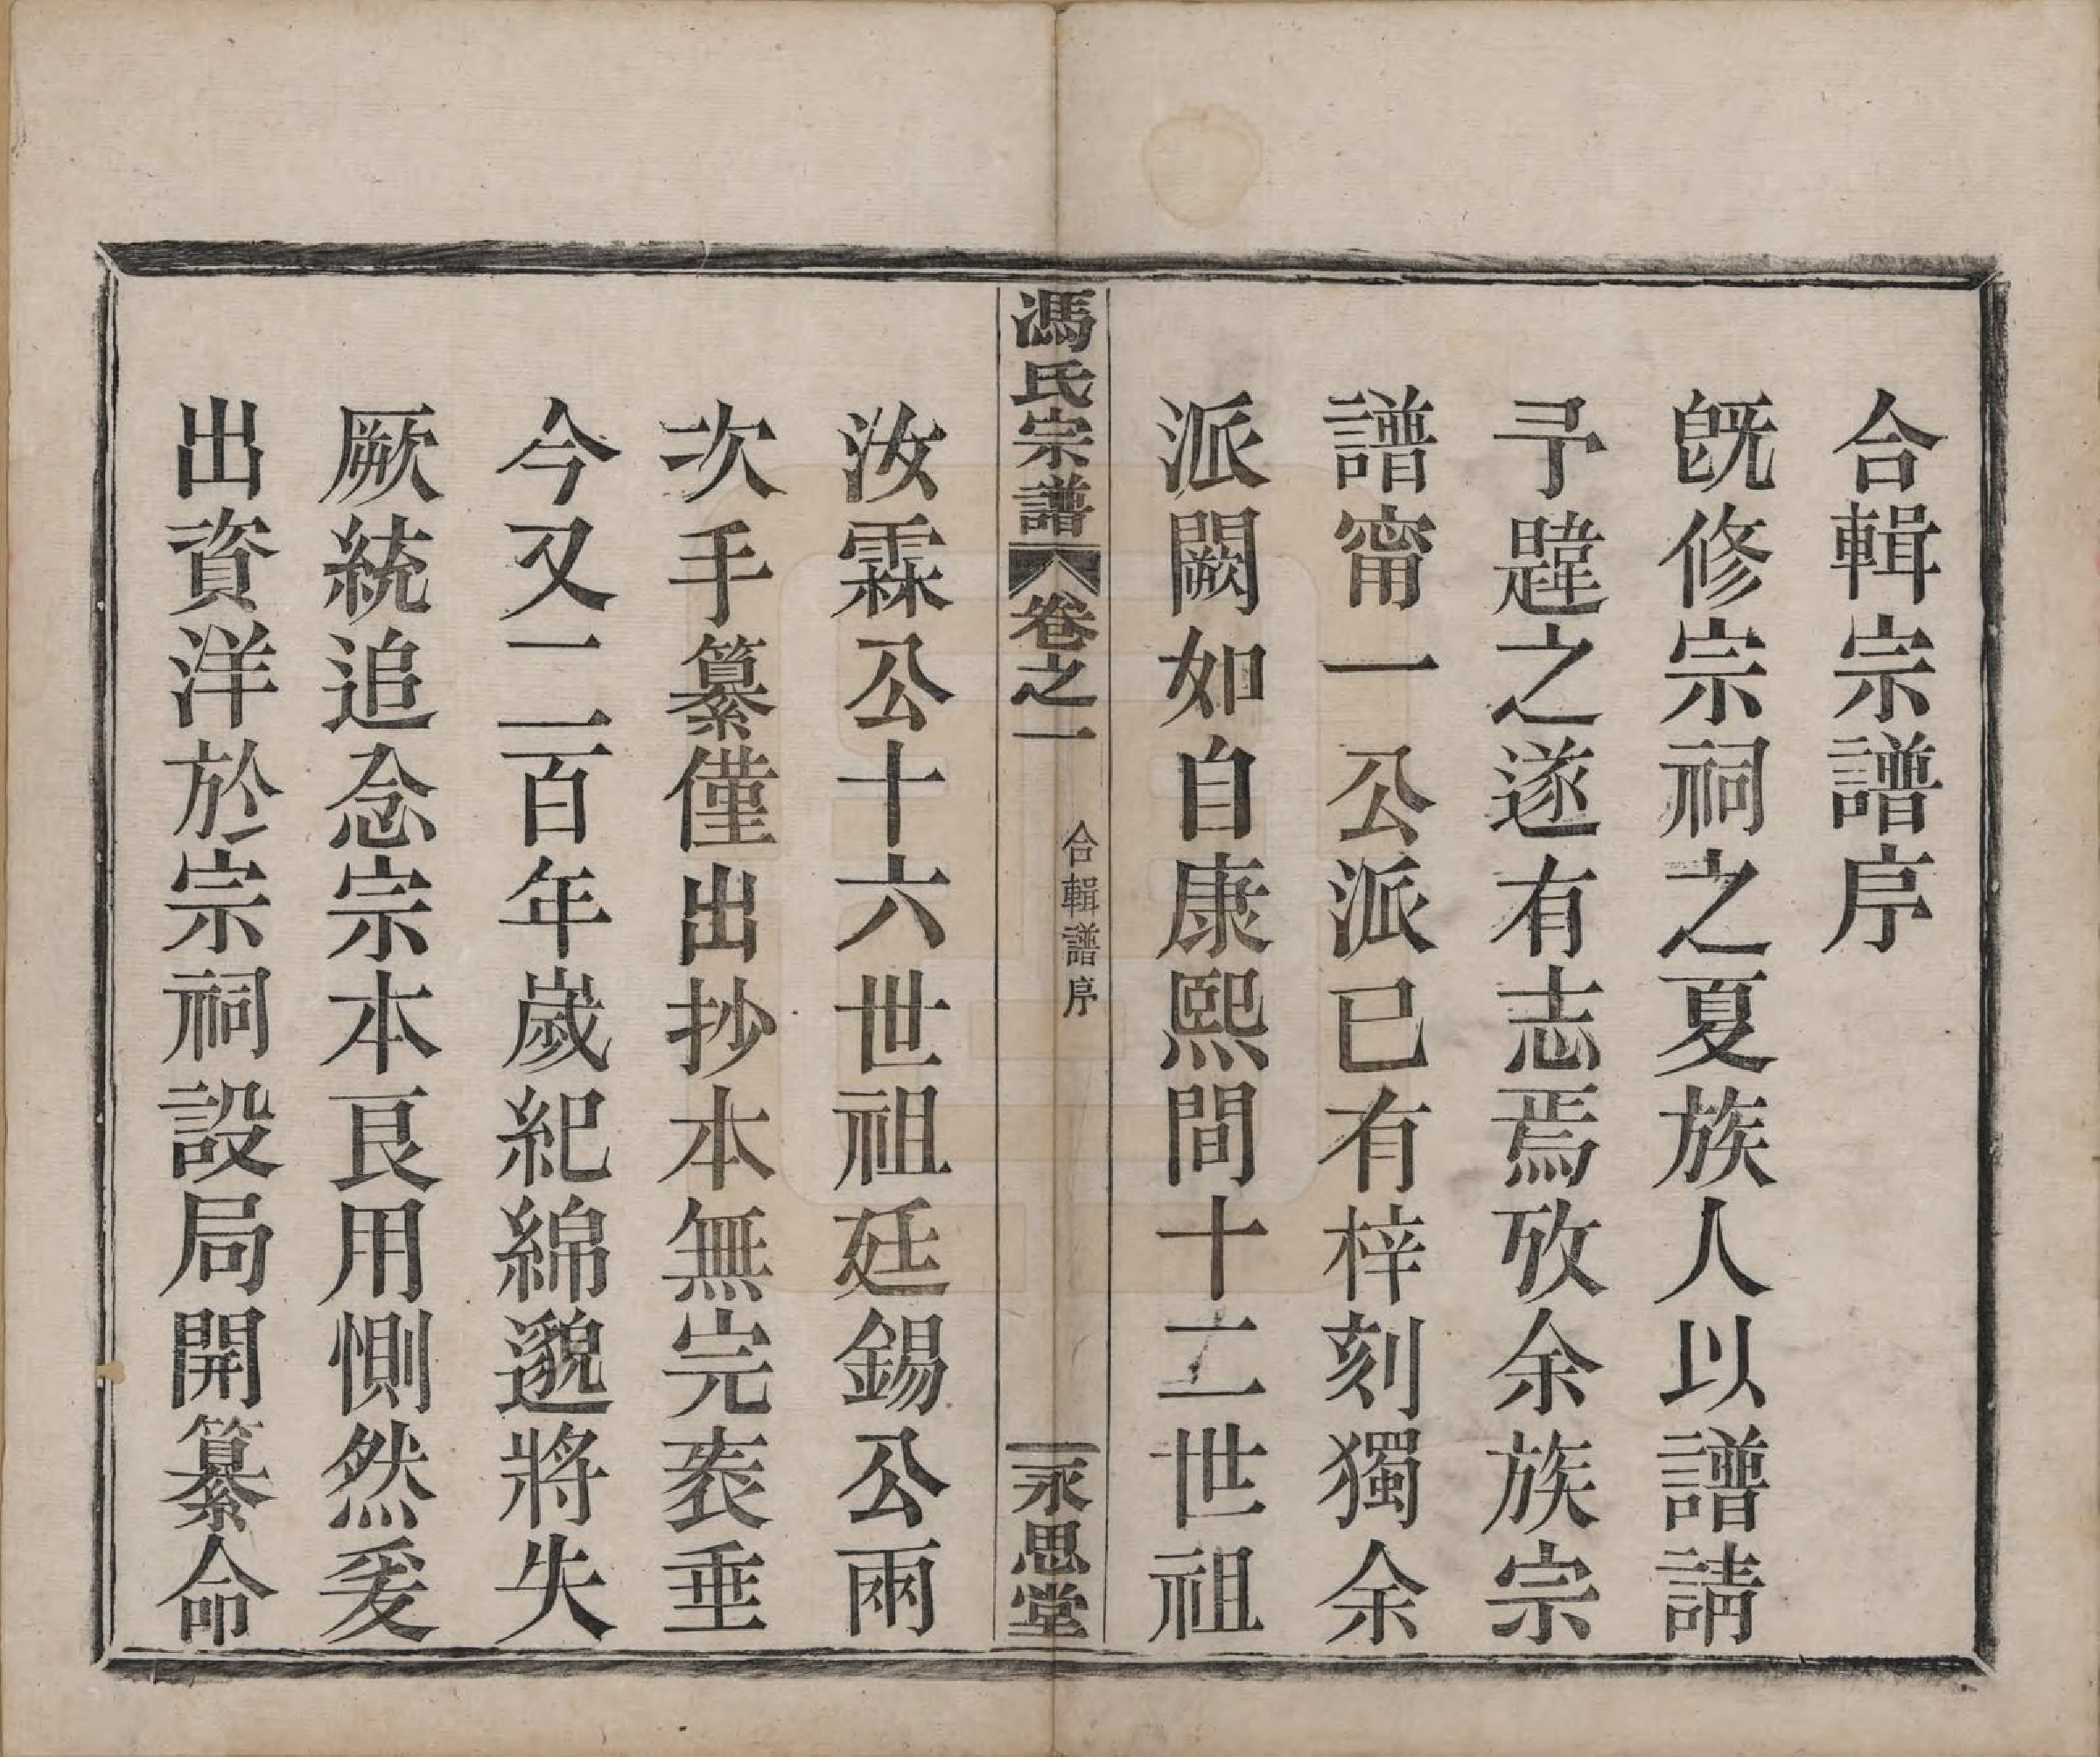 合輯宗譜序
旣修宗祠之夏族人以譜請
予韙之遂有志焉攷余族宗
譜甯一公派已有梓刻獨余
派闕如自康熙間十二世祖
馮氏宗譜
卷之一
合輯譜序
永思堂
汝霖公十六世祖廷錫公兩
次手纂僅出抄本無完袠垂
今又二百年歲紀綿邈將失
厥統追念宗本良用惻然爰
出資洋於宗祠設局開纂命